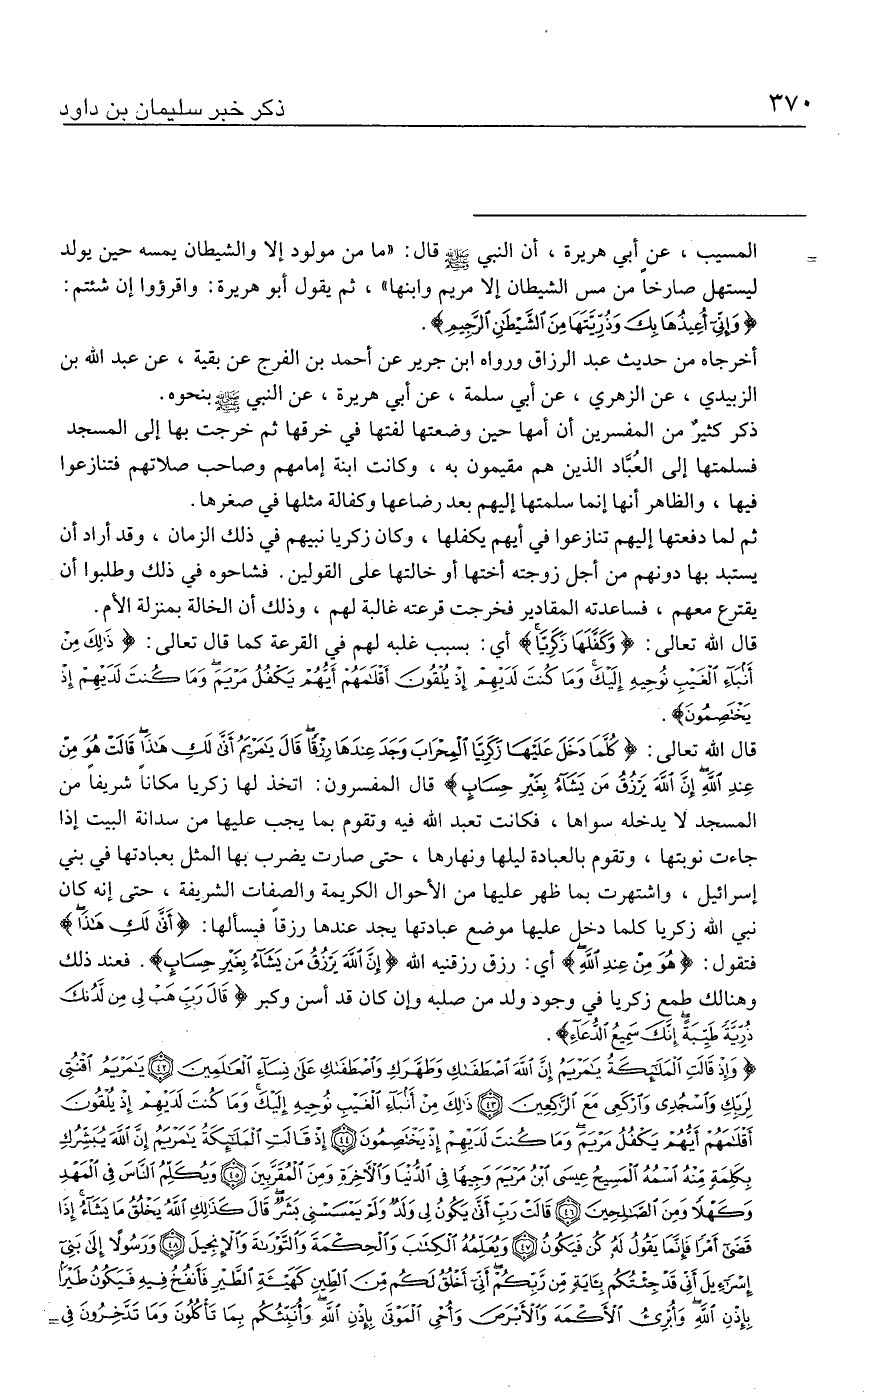 ٣٧٠
ذكر خبر سليمان بن داود
= المسيب ، عن أبي هريرة ، أن النبي ﷺ قال: «ما من مولود إلا والشيطان يمسه حين يولد
ليستهل صارخاً من مس الشيطان إلا مريم وابنها» ، ثم يقول أبو هريرة: واقرؤوا إن شئتم:
﴿ وَإِنِّىٓ أُعِيذُهَا بِكَ وَذُرِّيَّتَهَا مِنَ ٱلشَّيْطَٰنِ ٱلرَّجِيمِ﴾ .
أخرجاه من حديث عبد الرزاق ورواه ابن جرير عن أحمد بن الفرج عن بقية ، عن عبد الله بن
الزبيدي ، عن الزهري ، عن أبي سلمة ، عن أبي هريرة ، عن النبي ﷺ بنحوه.
ذكر كثيرٌ من المفسرين أن أمها حين وضعتها لفتها في خرقها ثم خرجت بها إلى المسجد
فسلمتها إلى العُبَّاد الذين هم مقيمون به ، وكانت ابنة إمامهم وصاحب صلاتهم فتنازعوا
فيها ، والظاهر أنها إنما سلمتها إليهم بعد رضاعها وكفالة مثلها في صغرها.
ثم لما دفعتها إليهم تنازعوا في أيهم يكفلها ، وكان زكريا نبيهم في ذلك الزمان ، وقد أراد أن
يستبد بها دونهم من أجل زوجته أختها أو خالتها على القولين. فشاحوه في ذلك وطلبوا أن
يقترع معهم ، فساعدته المقادير فخرجت قرعته غالبة لهم ، وذلك أن الخالة بمنزلة الأم.
قال الله تعالى: ﴿ وَكَفَّلَهَا زَكَرِيَّا﴾ أي: بسبب غلبه لهم في القرعة كما قال تعالى: ﴿ ذَٰلِكَ مِنْ
أَنۢبَآءِ ٱلْغَيْبِ نُوحِيهِ إِلَيْكَ وَمَا كُنتَ لَدَيْهِمْ إِذْ يُلْقُونَ أَقْلَٰمَهُمْ أَيُّهُمْ يَكْفُلُ مَرْيَمَ وَمَا كُنتَ لَدَيْهِمْ إِذْ
يَخْتَصِمُونَ﴾ .
قال الله تعالى: ﴿ كُلَّمَا دَخَلَ عَلَيْهَا زَكَرِيَّا ٱلْمِحْرَابَ وَجَدَ عِندَهَا رِزْقًا قَالَ يَٰمَرْيَمُ أَنَّىٰ لَكِ هَٰذَا قَالَتْ هُوَ مِنْ
عِندِ ٱللَّهِ إِنَّ ٱللَّهَ يَرْزُقُ مَن يَشَآءُ بِغَيْرِ حِسَابٍ﴾ قال المفسرون: اتخذ لها زكريا مكاناً شريفاً من
المسجد لا يدخله سواها ، فكانت تعبد الله فيه وتقوم بما يجب عليها من سدانة البيت إذا
جاءت نوبتها ، وتقوم بالعبادة ليلها ونهارها ، حتى صارت يضرب بها المثل بعبادتها في بني
إسرائيل ، واشتهرت بما ظهر عليها من الأحوال الكريمة والصفات الشريفة ، حتى إنه كان
نبي الله زكريا كلما دخل عليها موضع عبادتها يجد عندها رزقاً فيسألها: ﴿أَنَّىٰ لَكِ هَٰذَا﴾
فتقول: ﴿ هُوَ مِنْ عِندِ ٱللَّهِ﴾ أي: رزق رزقنيه الله ﴿ إِنَّ ٱللَّهَ يَرْزُقُ مَن يَشَآءُ بِغَيْرِ حِسَابٍ﴾ . فعند ذلك
وهنالك طمع زكريا في وجود ولد من صلبه وإن كان قد أسن وكبر ﴿ قَالَ رَبِّ هَبْ لِى مِن لَّدُنكَ
ذُرِّيَّةً طَيِّبَةً إِنَّكَ سَمِيعُ ٱلدُّعَآءِ﴾ .
﴿ وَإِذْ قَالَتِ ٱلْمَلَٰٓئِكَةُ يَٰمَرْيَمُ إِنَّ ٱللَّهَ ٱصْطَفَىٰكِ وَطَهَّرَكِ وَٱصْطَفَىٰكِ عَلَىٰ نِسَآءِ ٱلْعَٰلَمِينَ ﴿٤٢﴾ يَٰمَرْيَمُ ٱقْنُتِى
لِرَبِّكِ وَٱسْجُدِى وَٱرْكَعِى مَعَ ٱلرَّٰكِعِينَ ﴿٤٣﴾ ذَٰلِكَ مِنْ أَنۢبَآءِ ٱلْغَيْبِ نُوحِيهِ إِلَيْكَ وَمَا كُنتَ لَدَيْهِمْ إِذْ يُلْقُونَ
أَقْلَٰمَهُمْ أَيُّهُمْ يَكْفُلُ مَرْيَمَ وَمَا كُنتَ لَدَيْهِمْ إِذْ يَخْتَصِمُونَ ﴿٤٤﴾ إِذْ قَالَتِ ٱلْمَلَٰٓئِكَةُ يَٰمَرْيَمُ إِنَّ ٱللَّهَ يُبَشِّرُكِ
بِكَلِمَةٍ مِّنْهُ ٱسْمُهُ ٱلْمَسِيحُ عِيسَى ٱبْنُ مَرْيَمَ وَجِيهًا فِى ٱلدُّنْيَا وَٱلْءَاخِرَةِ وَمِنَ ٱلْمُقَرَّبِينَ ﴿٤٥﴾ وَيُكَلِّمُ ٱلنَّاسَ فِى ٱلْمَهْدِ
وَكَهْلًا وَمِنَ ٱلصَّٰلِحِينَ ﴿٤٦﴾ قَالَتْ رَبِّ أَنَّىٰ يَكُونُ لِى وَلَدٌ وَلَمْ يَمْسَسْنِى بَشَرٌ قَالَ كَذَٰلِكِ ٱللَّهُ يَخْلُقُ مَا يَشَآءُ إِذَا
قَضَىٰٓ أَمْرًا فَإِنَّمَا يَقُولُ لَهُۥ كُن فَيَكُونُ ﴿٤٧﴾ وَيُعَلِّمُهُ ٱلْكِتَٰبَ وَٱلْحِكْمَةَ وَٱلتَّوْرَىٰةَ وَٱلْإِنجِيلَ ﴿٤٨﴾ وَرَسُولًا إِلَىٰ بَنِىٓ
إِسْرَٰٓءِيلَ أَنِّى قَدْ جِئْتُكُم بِـَٔايَةٍ مِّن رَّبِّكُمْ أَنِّىٓ أَخْلُقُ لَكُم مِّنَ ٱلطِّينِ كَهَيْـَٔةِ ٱلطَّيْرِ فَأَنفُخُ فِيهِ فَيَكُونُ طَيْرًۢا
بِإِذْنِ ٱللَّهِ وَأُبْرِئُ ٱلْأَكْمَهَ وَٱلْأَبْرَصَ وَأُحْىِ ٱلْمَوْتَىٰ بِإِذْنِ ٱللَّهِ وَأُنَبِّئُكُم بِمَا تَأْكُلُونَ وَمَا تَدَّخِرُونَ فِى =